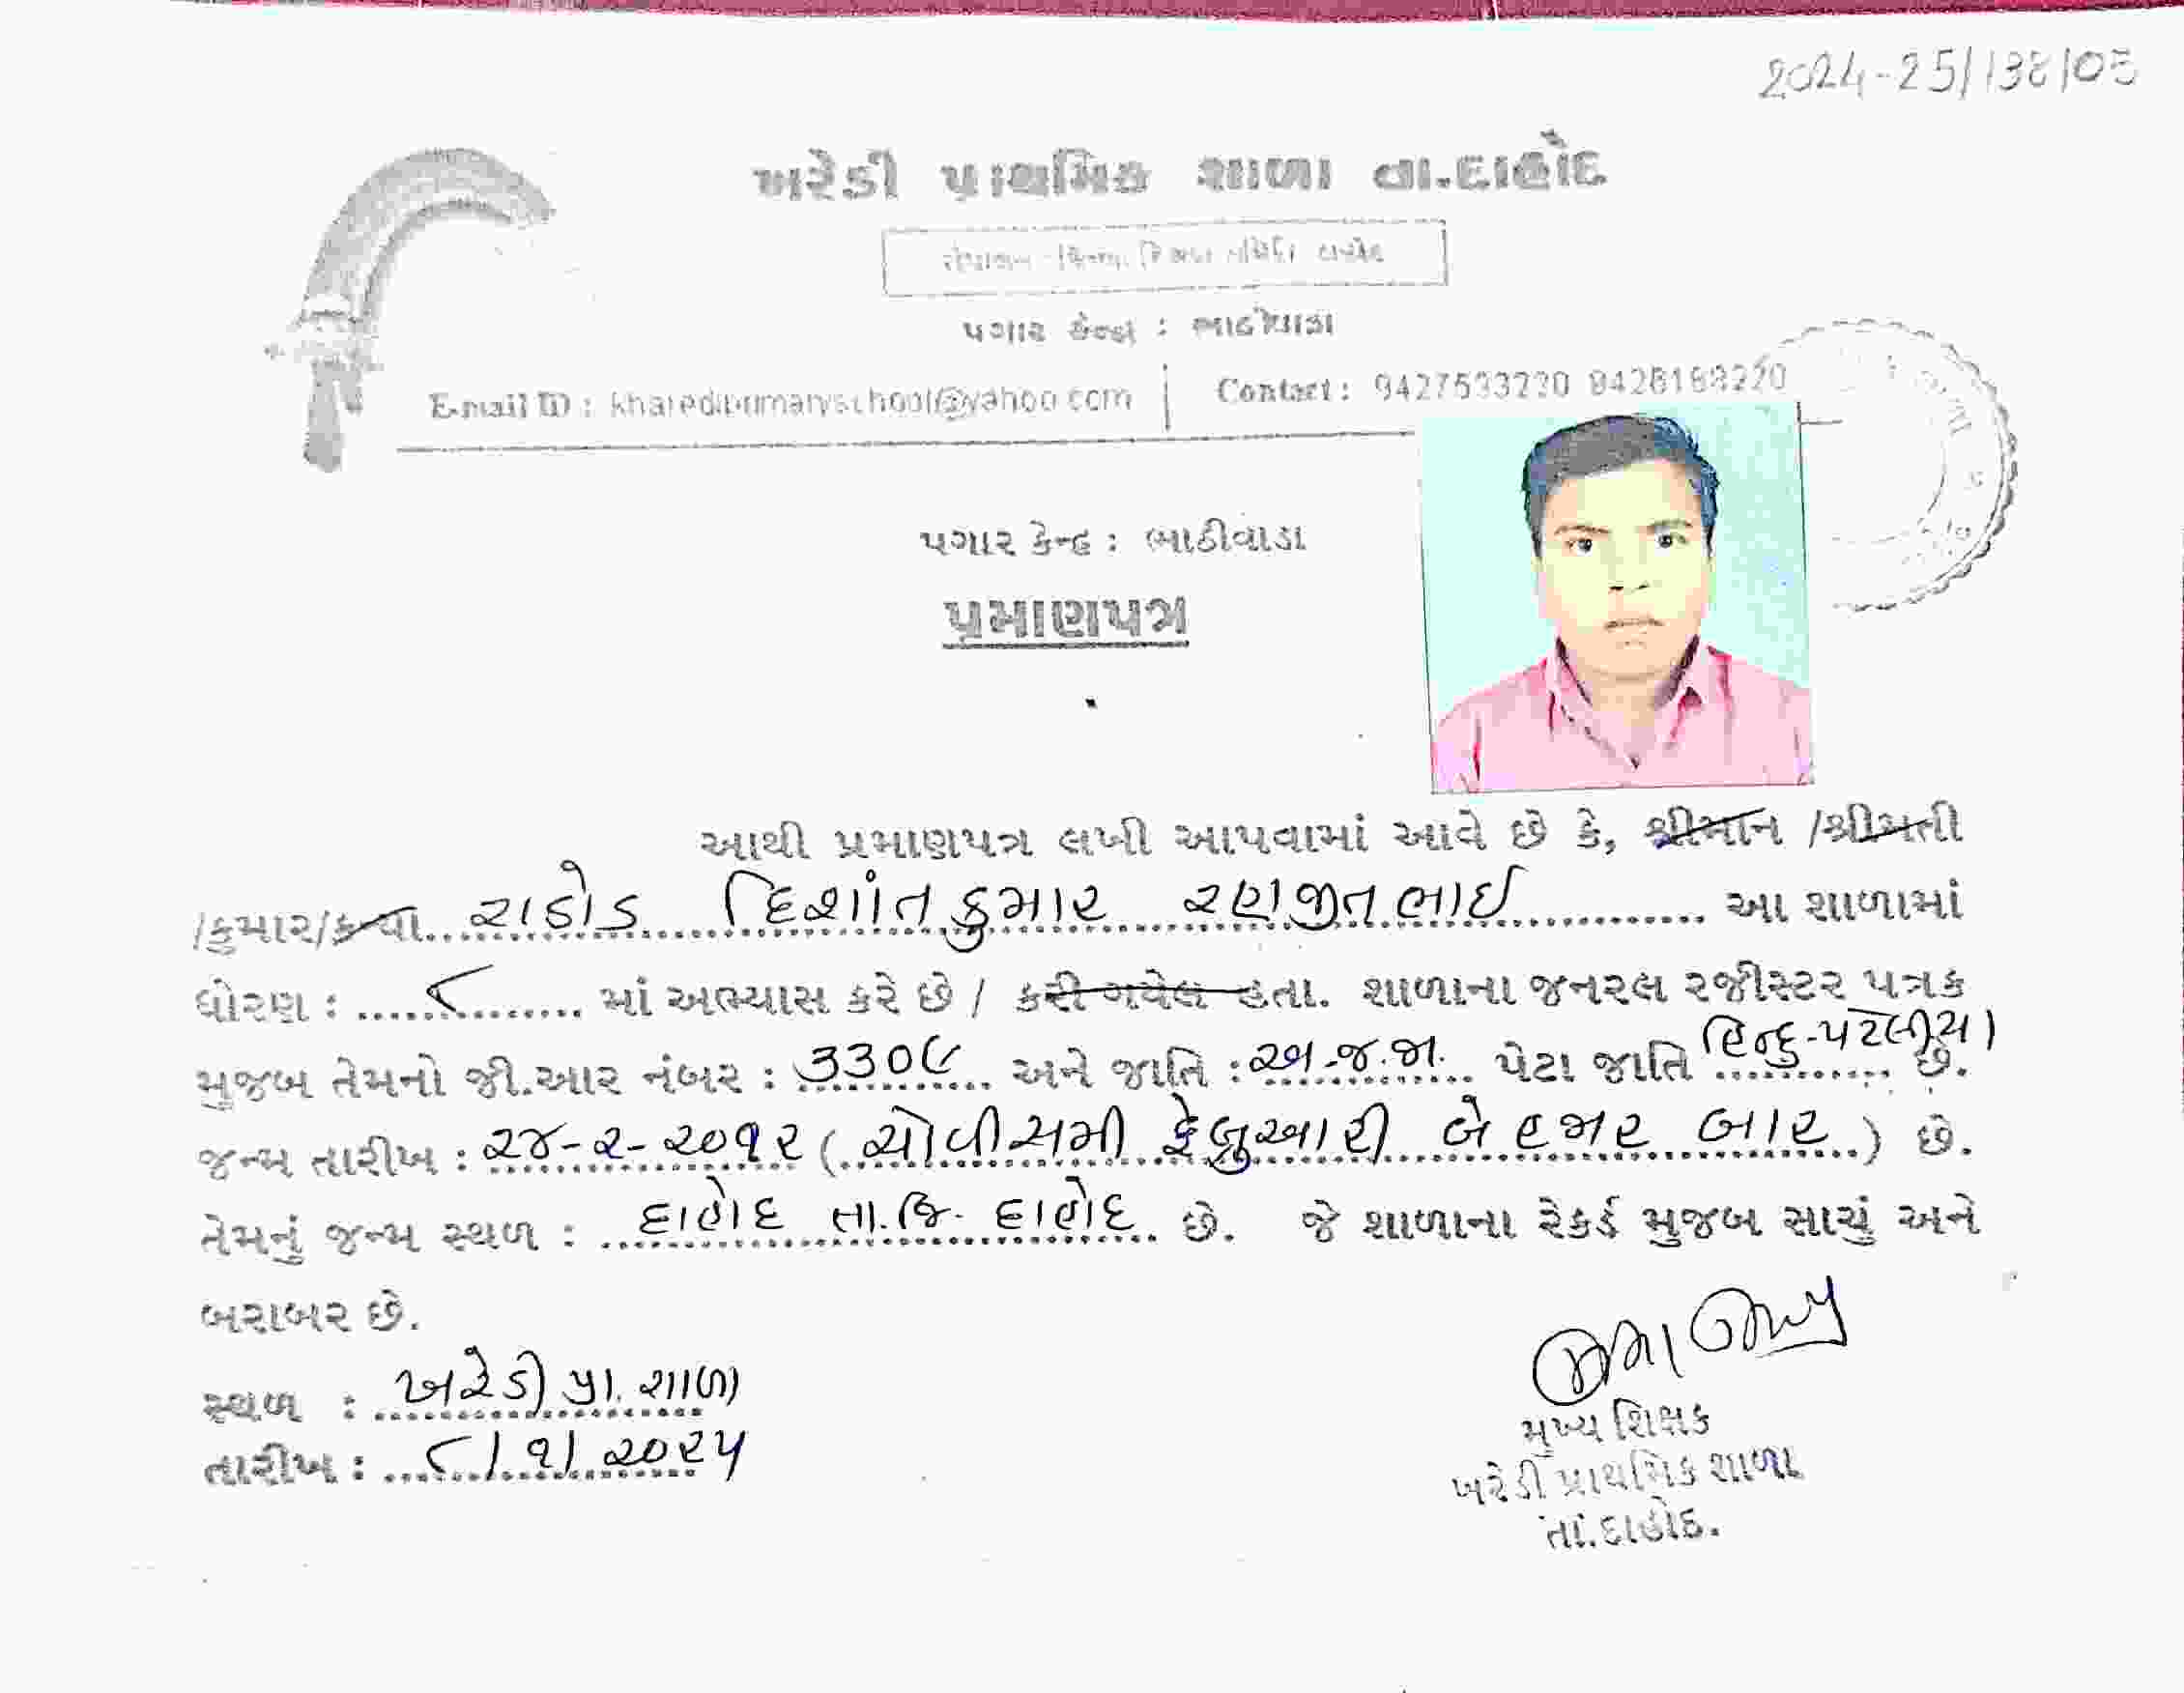 2024-25/138/05
ખરેડી પ્રાથમિક શાળા તા.દાહોદ
પગાર કેન્દ્ર : ભાઠીવાડા
E-mail ID : kharediprimaryschool@yahoo.com | Contact : 9427533220 9428168220
પગાર કેન્દ્ર : ભાઠીવાડા
પ્રમાણપત્ર
આથી પ્રમાણપત્ર લખી આપવામાં આવે છે કે, શ્રીમાન /શ્રીમતી
/કુમાર/કન્યા.. રાઠોડ દિશાંતકુમાર રણજીતભાઈ ............ આ શાળામાં
ધોરણ : ......૮....... માં અભ્યાસ કરે છે / કરી ગયેલ હતા. શાળાના જનરલ રજીસ્ટર પત્રક
મુજબ તેમનો જી.આર નંબર : ૩૩૦૯.. અને જાતિ : અ.જ.જા. પેટા જાતિ હિન્દુ-પટેલીયા છે.
જન્મ તારીખ : ૨૪-૨-૨૦૧૨ ( ચોવીસમી ફેબ્રુઆરી બે હજાર બાર ) છે.
તેમનું જન્મ સ્થળ : દાહોદ તા.જિ. દાહોદ છે. જે શાળાના રેકર્ડ મુજબ સાચું અને
બરાબર છે.
સ્થળ : ખરેડી પ્રા. શાળા
તારીખ : ૮/૧/૨૦૨૫
મુખ્ય શિક્ષક
ખરેડી પ્રાથમિક શાળા
તા.દાહોદ.